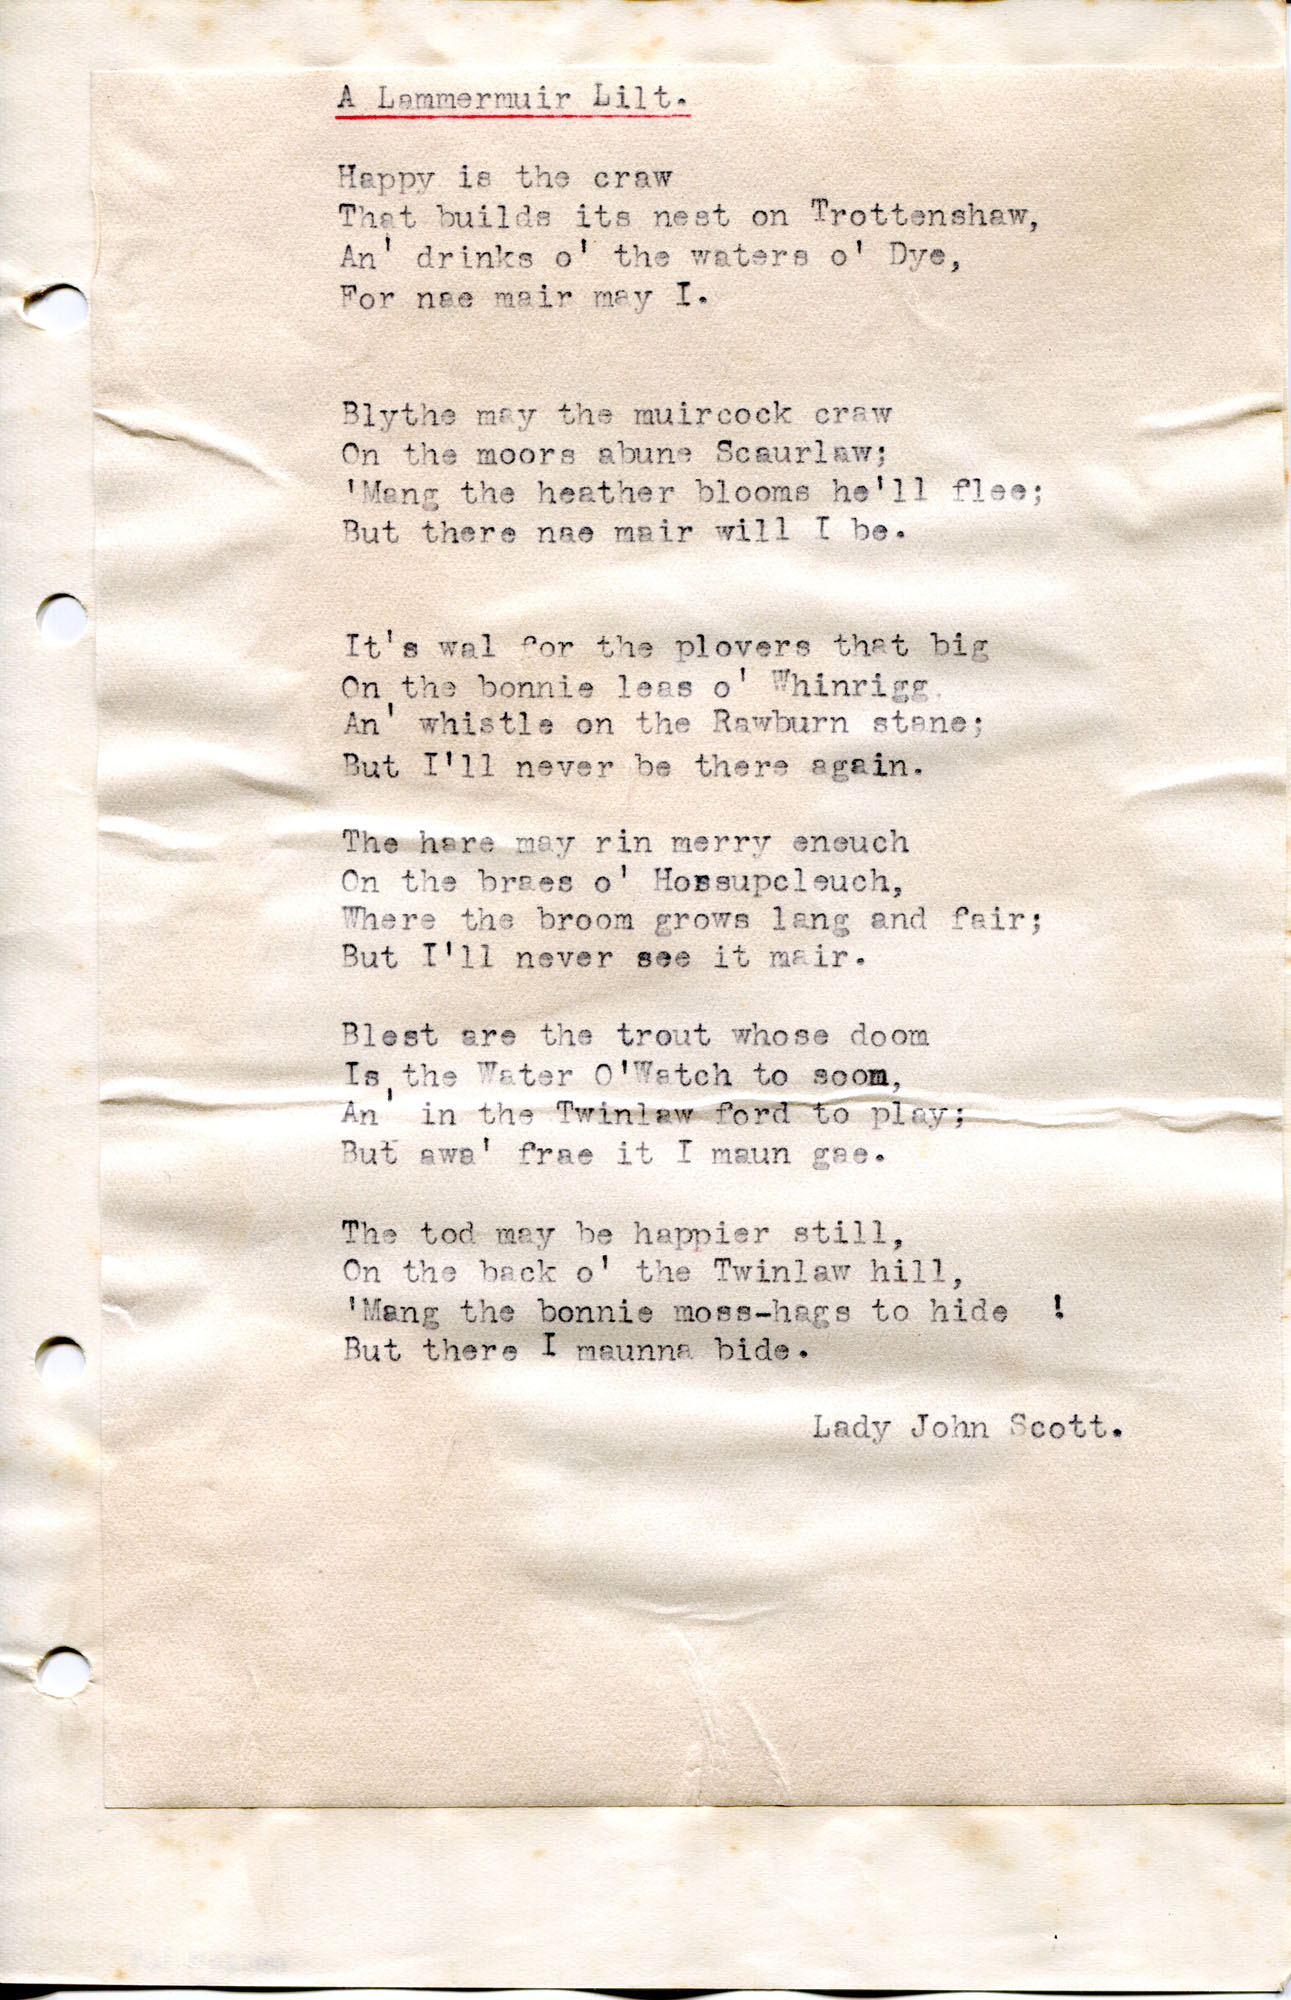 A Lammermuir Lilt.
Happy is the craw
That builds its nest on Trottenshaw,
An' drinks o' the waters o' Dye,
For nae mair may I.
Blythe may the muircock craw
On the moors abune Scaurlaw;
'Mang the heather blooms he'll flee;
But there nae mair will I be.
It's wal for the plovers that big
On the bonnie leas o' Whinrigg,
An' whistle on the Rawburn stane;
But I'll never be there again.
The hare may rin merry eneuch
On the braes o' Horsupcleuch,
Where the broom grows lang and fair;
But I'll never see it mair.
Blest are the trout whose doom
Is the Water O'Watch to soom,
An' in the Twinlaw ford to play;
But awa' frae it I maun gae.
The tod may be happier still,
On the back o' the Twinlaw hill,
'Mang the bonnie moss-hags to hide !
But there I maunna bide.
Lady John Scott.